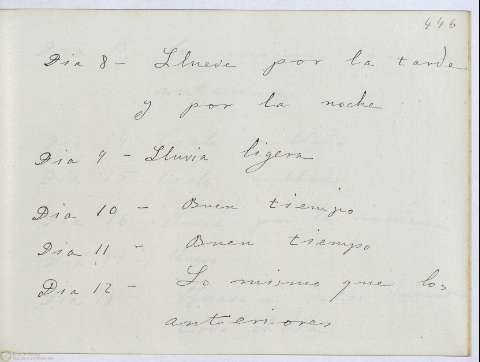 446
Dia 8 - Llueve por la tarde
y por la noche
Dia 9 - Lluvia ligera
Dia 10 - Buen tiempo
Dia 11 - Buen tiempo
Dia 12 - Lo mismo que los
anteriores